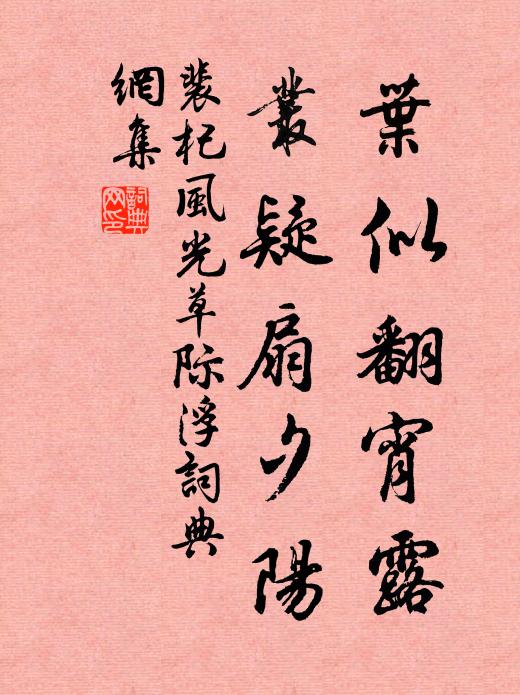 葉似翻宵露
叢疑扇夕陽
裴杞風光草际浮詞典
網集
詞典
网印